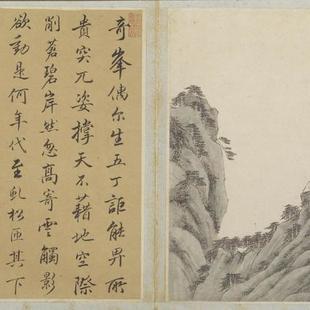 奇峯偶尔生五丁詎能畀所
貴突兀姿撑天不藉地空際
削蒼碧岸然忽高寄雲觸影
欲動是何年代至虬松匝其下